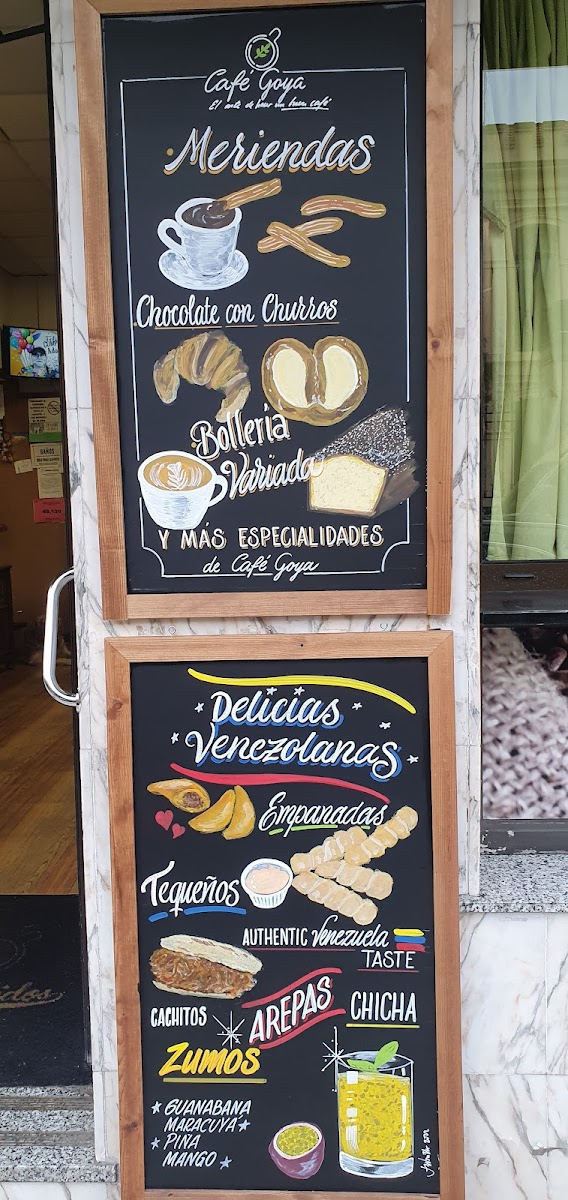 Café Goya
El arte de hacer un buen café
Meriendas
Chocolate con Churros
Bollería
Variada
Y MÁS ESPECIALIDADES
de Café Goya
Delicias
Venezolanas
Empanadas
Tequeños
AUTHENTIC Venezuela
TASTE
CACHITOS
AREPAS
CHICHA
Zumos
GUANABANA
MARACUYÁ
PIÑA
MANGO